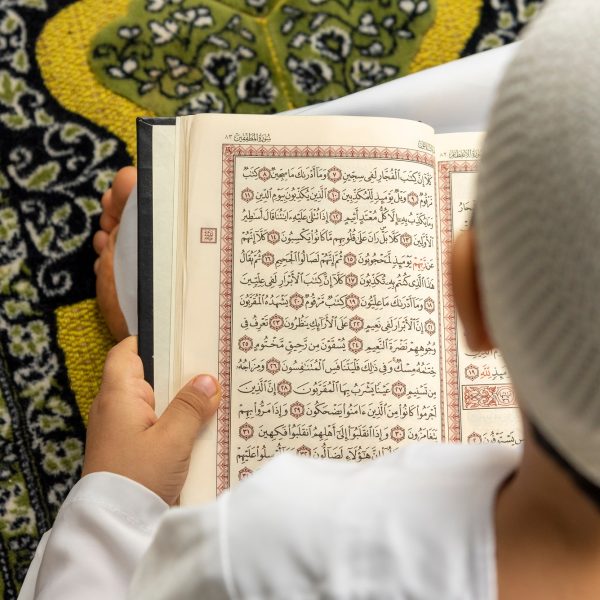 سُورَةُ المُطَفِّفِينَ ٨٣
كَلَّا إِنَّ كِتَٰبَ ٱلْفُجَّارِ لَفِى سِجِّينٍ ٧ وَمَآ أَدْرَىٰكَ مَا سِجِّينٌ ٨ كِتَٰبٌ
مَّرْقُومٌ ٩ وَيْلٌ يَوْمَئِذٍ لِّلْمُكَذِّبِينَ ١٠ ٱلَّذِينَ يُكَذِّبُونَ بِيَوْمِ ٱلدِّينِ ١١
وَمَا يُكَذِّبُ بِهِۦٓ إِلَّا كُلُّ مُعْتَدٍ أَثِيمٍ ١٢ إِذَا تُتْلَىٰ عَلَيْهِ ءَايَٰتُنَا قَالَ أَسَٰطِيرُ
ٱلْأَوَّلِينَ ١٣ كَلَّا بَلْ رَانَ عَلَىٰ قُلُوبِهِم مَّا كَانُوا۟ يَكْسِبُونَ ١٤ كَلَّآ إِنَّهُمْ
عَن رَّبِّهِمْ يَوْمَئِذٍ لَّمَحْجُوبُونَ ١٥ ثُمَّ إِنَّهُمْ لَصَالُوا۟ ٱلْجَحِيمِ ١٦ ثُمَّ يُقَالُ
هَٰذَا ٱلَّذِى كُنتُم بِهِۦ تُكَذِّبُونَ ١٧ كَلَّآ إِنَّ كِتَٰبَ ٱلْأَبْرَارِ لَفِى عِلِّيِّينَ
١٨ وَمَآ أَدْرَىٰكَ مَا عِلِّيُّونَ ١٩ كِتَٰبٌ مَّرْقُومٌ ٢٠ يَشْهَدُهُ ٱلْمُقَرَّبُونَ
٢١ إِنَّ ٱلْأَبْرَارَ لَفِى نَعِيمٍ ٢٢ عَلَى ٱلْأَرَآئِكِ يَنظُرُونَ ٢٣ تَعْرِفُ فِى
وُجُوهِهِمْ نَضْرَةَ ٱلنَّعِيمِ ٢٤ يُسْقَوْنَ مِن رَّحِيقٍ مَّخْتُومٍ ٢٥
خِتَٰمُهُۥ مِسْكٌ وَفِى ذَٰلِكَ فَلْيَتَنَافَسِ ٱلْمُتَنَٰفِسُونَ ٢٦ وَمِزَاجُهُۥ
مِن تَسْنِيمٍ ٢٧ عَيْنًا يَشْرَبُ بِهَا ٱلْمُقَرَّبُونَ ٢٨ إِنَّ ٱلَّذِينَ
أَجْرَمُوا۟ كَانُوا۟ مِنَ ٱلَّذِينَ ءَامَنُوا۟ يَضْحَكُونَ ٢٩ وَإِذَا مَرُّوا۟ بِهِمْ
يَتَغَامَزُونَ ٣٠ وَإِذَا ٱنقَلَبُوٓا۟ إِلَىٰٓ أَهْلِهِمُ ٱنقَلَبُوا۟ فَكِهِينَ ٣١